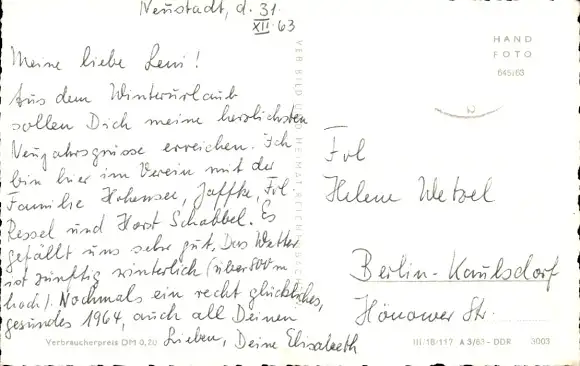 Neustadt, d. 31.
XII. 63
Meine liebe Leni!
Aus dem Winterurlaub
sollen Dich meine herzlichsten
Neujahrsgrüsse erreichen. Ich
bin hier im Verein mit der
Familie Hohensee, Jaffke, Frl.
Ressel und Horst Schabbel. Es
gefällt uns sehr gut. Das Wetter
ist zünftig winterlich (über 800 m
hoch). Nochmals ein recht glückliches,
gesundes 1964, auch all Deinen
Lieben, Deine Elisabeth
Verbraucherpreis DM 0,20
VEB BILD UND HEIMAT REICHENBACH
HAND
FOTO
645/63
Frl
Helene Wetzel
Berlin-Kaulsdorf
Hönower Str.
III/18/117 A 3/63 - DDR 3003